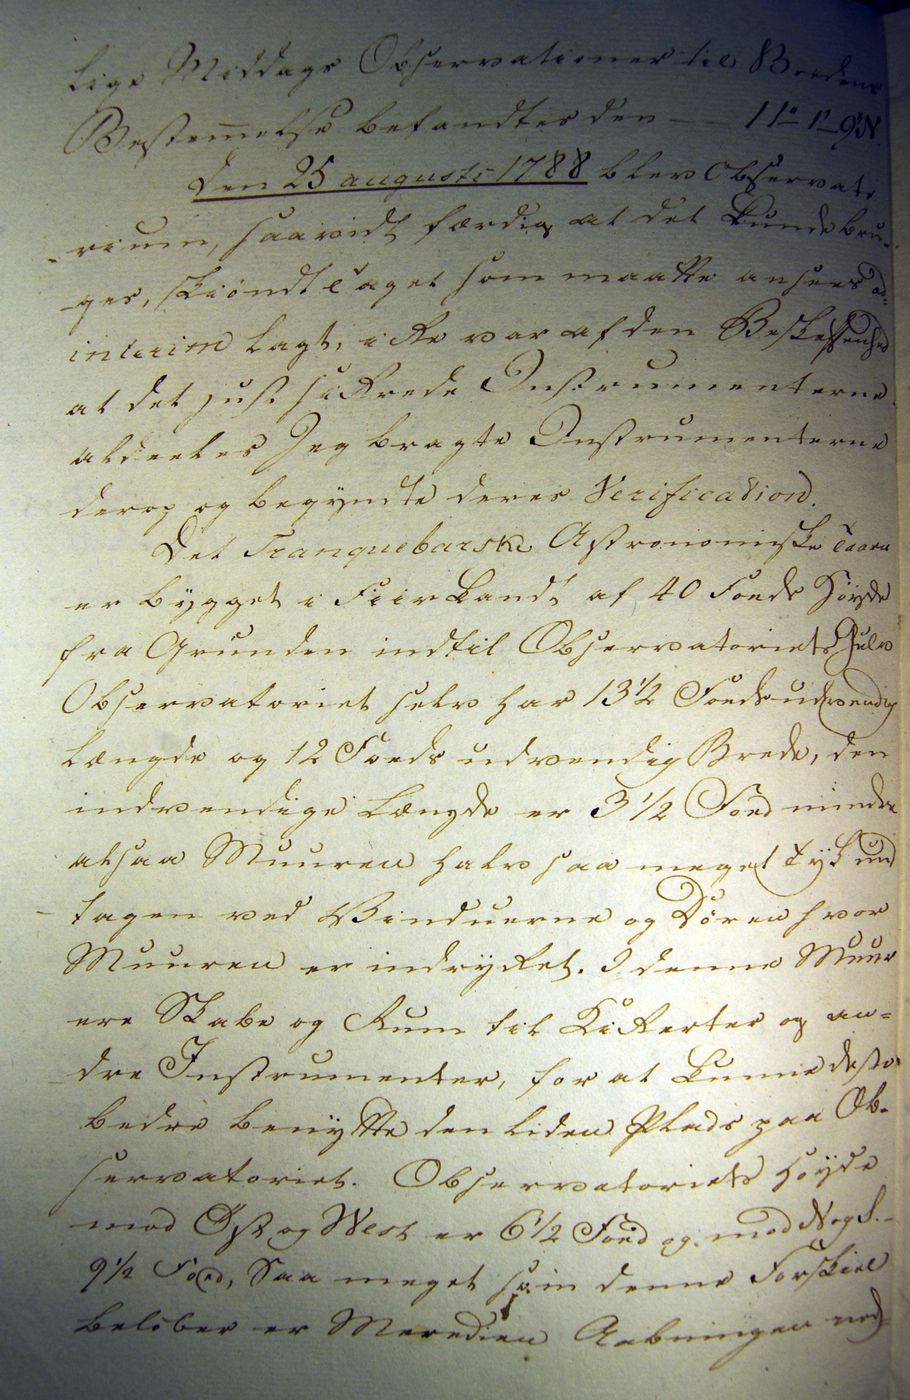 lige Middags Observationer til Bredens
Bestem̅else befandtes den — 11° 1' 9" N.
Den 25 augusti 1788 blev Observato
rium, saavidt færdig at det kunde bru-
ges, skiöndt Taget som maatte ansees ad
interim lagt, icke var af den Beskaffenhed
at det just sickrede Instrumenterne
aldeeles Jeg bragte Instrumenterne
derop og begyndte deres Verification.
Det Tranquebarske Astronomiske Taarn
er bygget i Fiirkandt af 40 Foeds Höyde
fra Grunden indtil Observatoriets Gulv
Observatoriet selv har 13 1/2 Foeds udvendig
Længde og 12 Foeds udvendig Brede, den
indvendige Længde er 3 1/2 Foed mindre
altsaa Muuren halv saa meget tyk und
tagen ved Vinduerne og Dören hvor
Muuren er indrycket. I denne Muur
ere Skabe og Rum til Kickerter og an=
dre Instrumenter, for at kunne desto
bedre benytte den liden Plads paa Ob-
servatoriet. Observatoriets Höyde
mod Øst og West er 6 1/2 Foed og mod N og S.
9 1/2 Foed, Saa meget som denne Forskiel
belöber er Meredien Aabningen ned